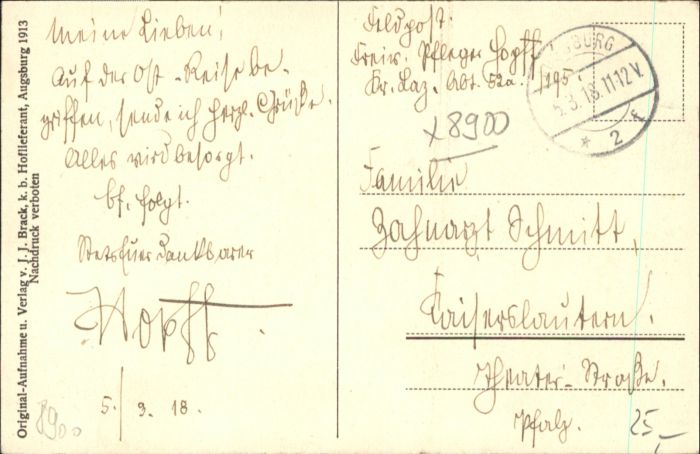 Original-Aufnahme u. Verlag v. J. J. Brack, k. b. Hoflieferant, Augsburg 1913
Nachdruck verboten
Meine Lieben!
Auf der Ost-Reise be-
griffen, sende ich herzl. Grüße.
Alles wird besorgt.
Bf. folgt.
Stets Euer dankbarer
Hopff.
5./3. 18.
8900
Feldpost.
Freiw. Pfleger Hopff
Kr. Laz. Abt. 52a.
x8900
AUGSBURG
5.3.18.11-12V.
* 2 F
Familie
Zahnarzt Schmitt,
Kaiserslautern.
Theater-Straße.
Pfalz.
25,-